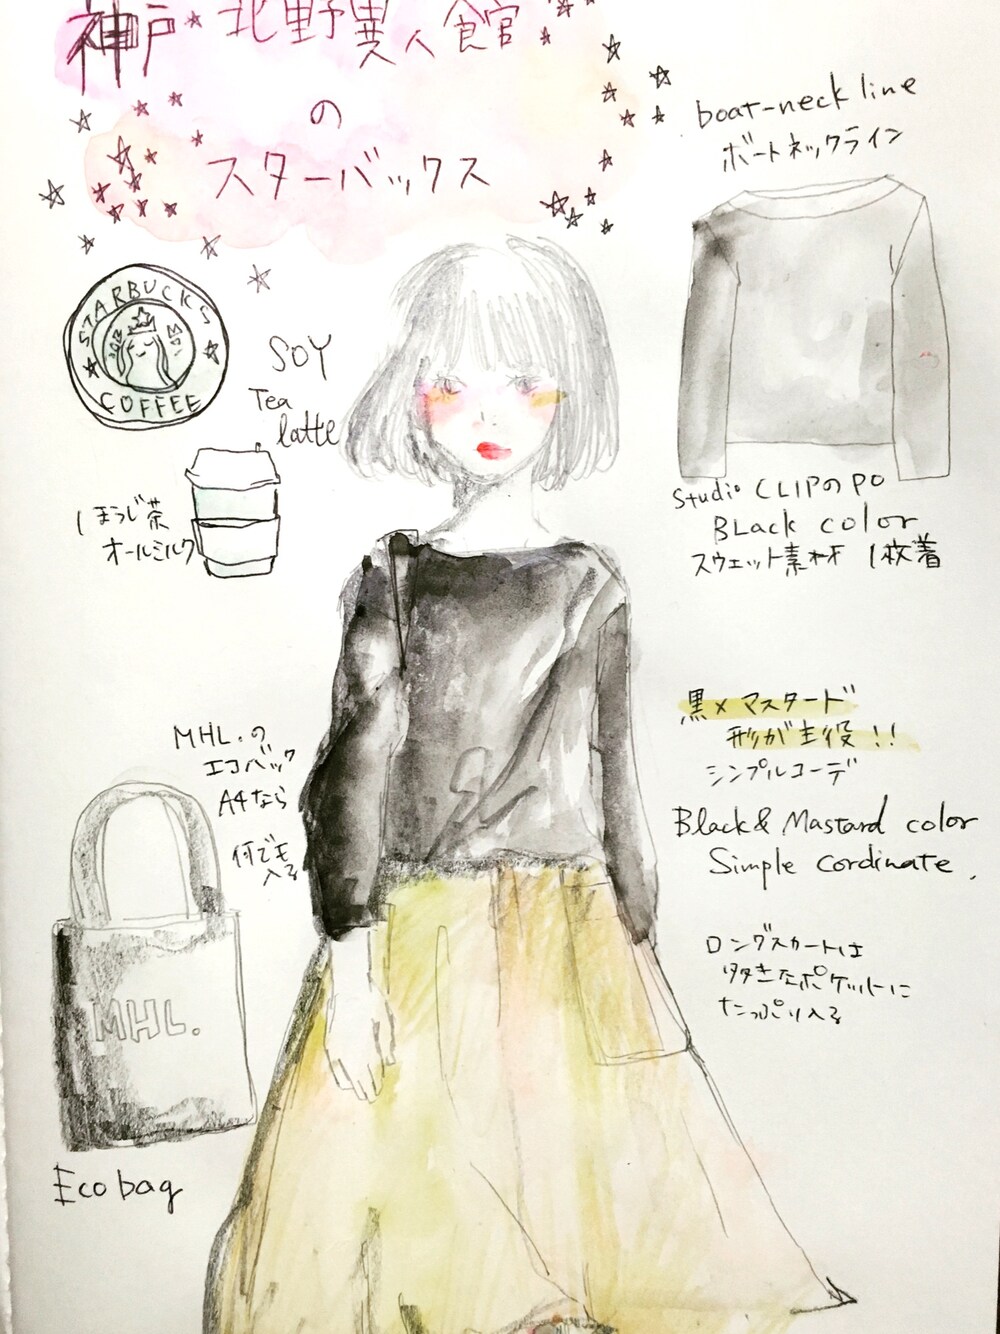 神戸 北野異人食官
の
スターバックス
boat-neck line
ボートネックライン
STARBUCKS
COFFEE
SOY
Tea
latte
ほうじ茶
オールミルク
Studio CLIPのPO
BLack color
スウェット素材 1枚着
黒×マスタード
形が主役!!
シンプルコーデ
Black& Mastard color
Simple cordinate.
MHL.の
エコバック
A4なら
何でも
入る
MHL.
Eco bag
ロングスカートは
大きなポケットに
たっぷり入る